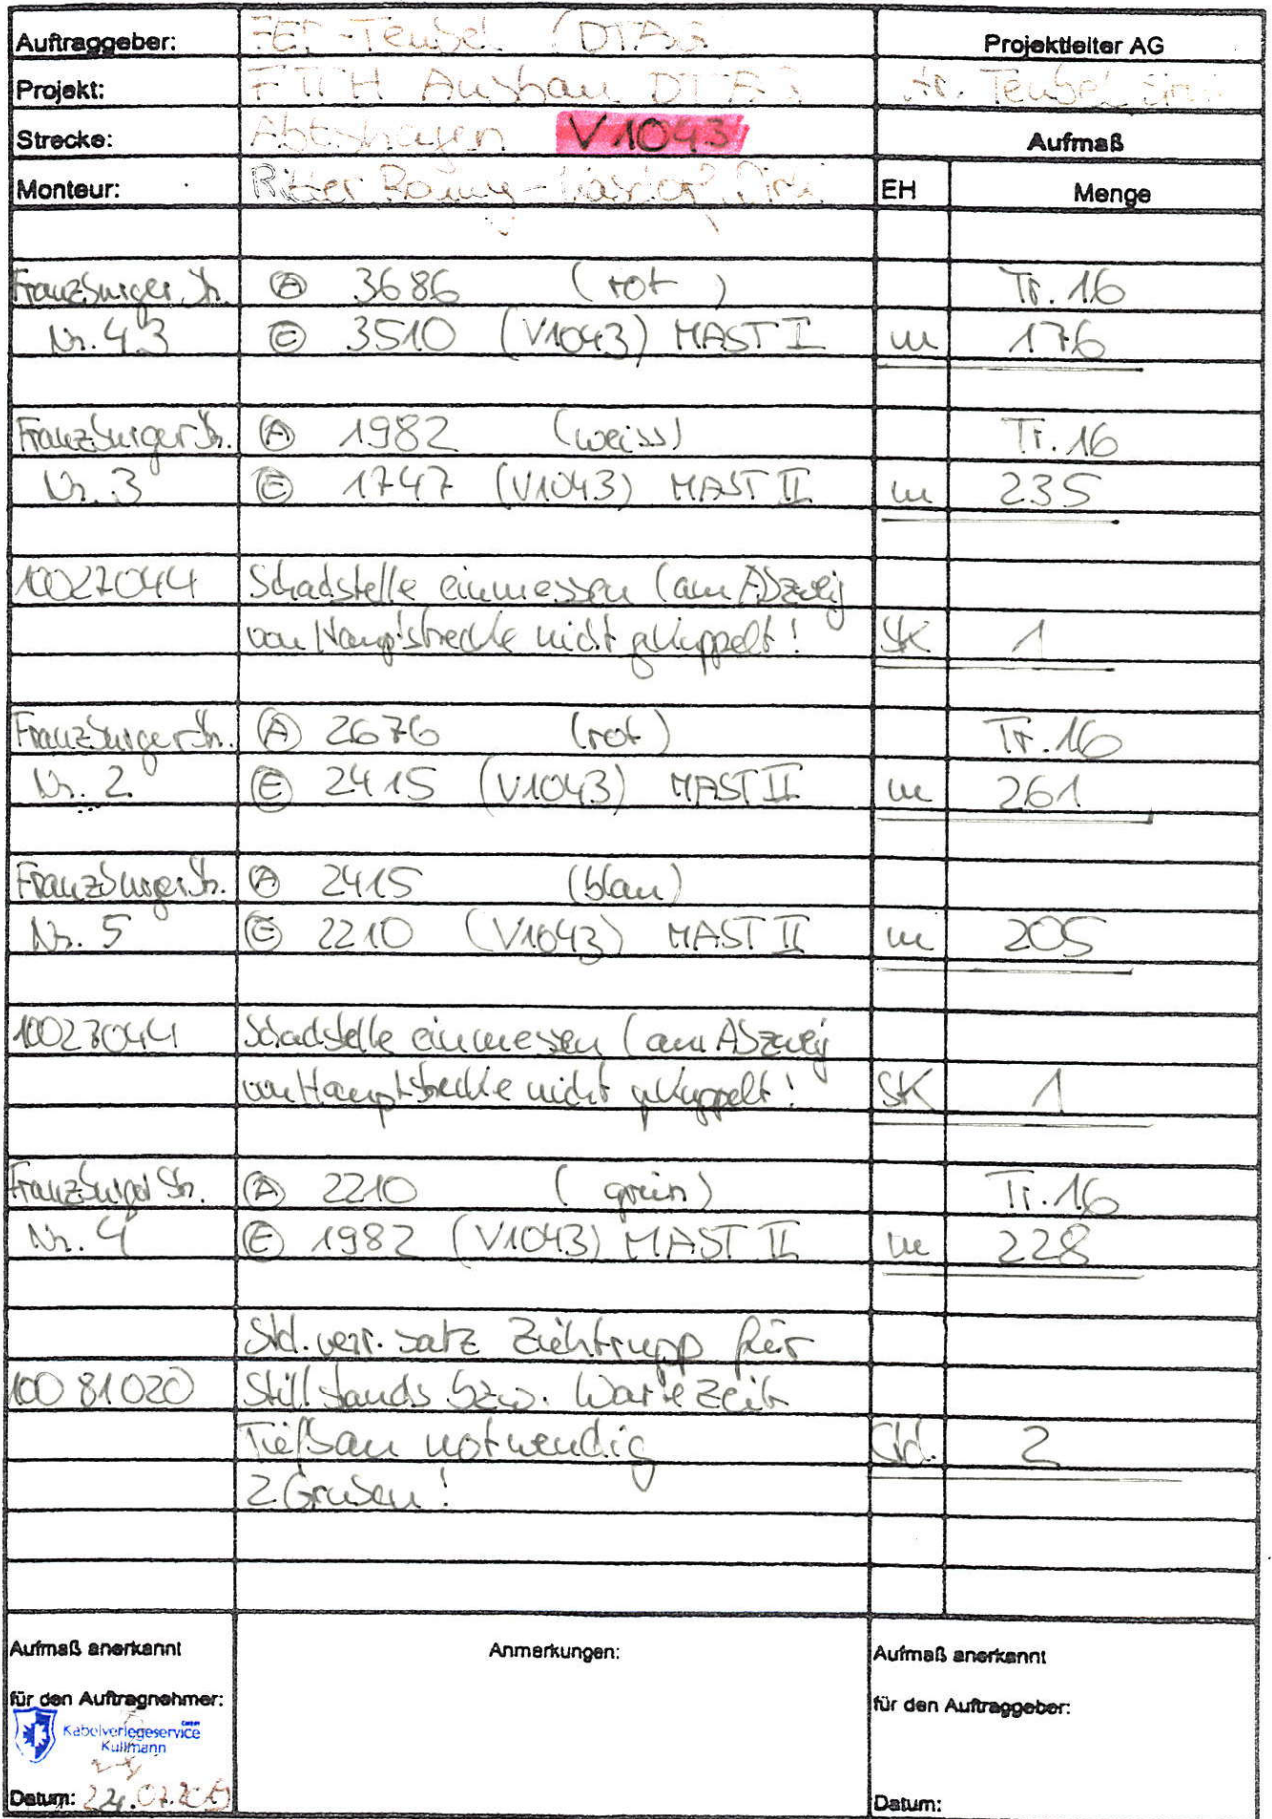 Auftraggeber: FET-Teubel / DTAG Projektleiter AG
Projekt: FTTH Ausbau DTAG Hr. Teubel
Strecke: Abtshagen V1043 Aufmaß
Monteur: Ritter EH Menge
Franzburger Str. Ⓐ 3686 (rot) Tr. 16
Nr. 43 Ⓔ 3510 (V1043) MAST I m 176
Franzburger Str. Ⓐ 1982 (weiss) Tr. 16
Nr. 3 Ⓔ 1747 (V1043) MAST II m 235
10027044 Schadstelle einmessen (am Abzweig
von Hauptstrecke nicht gekuppelt! SK 1
Franzburger Str. Ⓐ 2676 (rot) Tr. 16
Nr. 2 Ⓔ 2415 (V1043) MAST II m 261
Franzburger Str. Ⓐ 2415 (blau)
Nr. 5 Ⓔ 2210 (V1043) MAST II m 205
10027044 Schadstelle einmessen (am Abzweig
von Hauptstrecke nicht gekuppelt! SK 1
Franzburger Str. Ⓐ 2210 (grün) Tr. 16
Nr. 4 Ⓔ 1982 (V1043) MAST II m 228
Std. verr. satz Ziehtrupp für
100 81020 Stillstands bzw. Wartezeit
Tiefbau notwendig Std. 2
2 Gruben!
Aufmaß anerkannt Anmerkungen: Aufmaß anerkannt
für den Auftragnehmer: für den Auftraggeber:
Kabelverlegeservice GmbH
Kullmann
Datum: Datum: